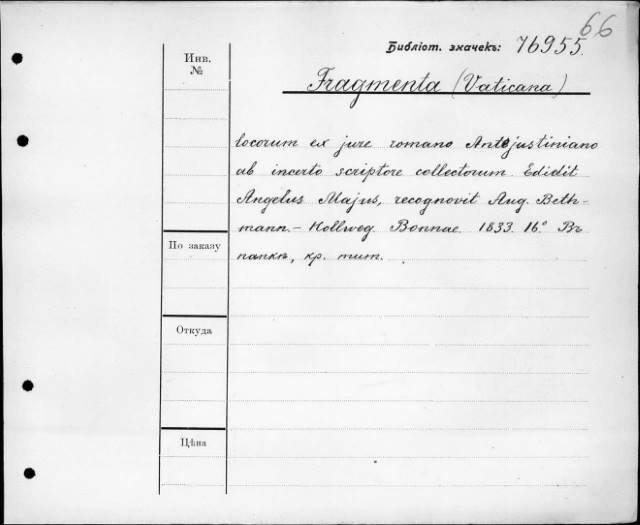 66
Библіот. значекъ: 76955.
Инв.
№
Fragmenta (Vaticana)
locorum ex jure romano Antejustiniano
ab incerto scriptore collectorum Edidit
Angelus Majus, recognovit Aug. Beth-
mann.-Hollweg. Bonnae 1833. 16° Въ
папкѣ, кр. тит.
По заказу
Откуда
Цѣна